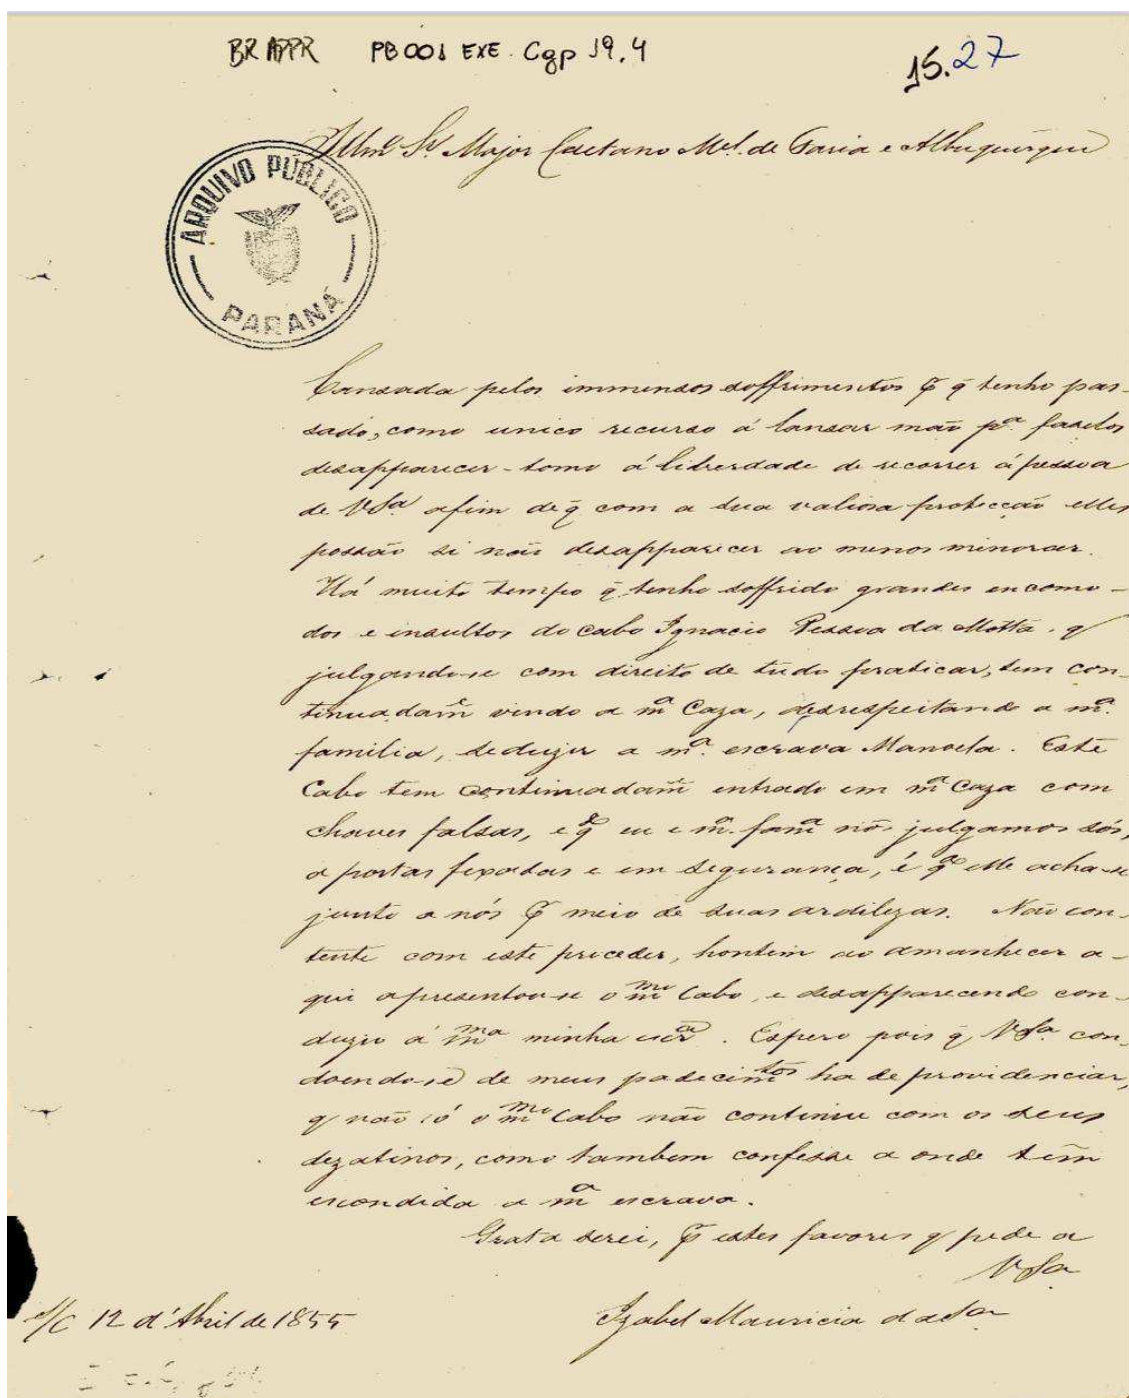 BR APPR PB001 EXE. Cgp 19.4
15.27
Illmo Sr. Major Caetano Mel. de Faria e Albuquerque
ARQUIVO PÚBLICO
PARANÁ
Cansada pelos immensos soffrimentos p q̃ tenho pas-
sado, como unico recurso á lansar mão pa. faselos
desapparecer - tomo á liberdade de recorrer á pessoa
de VSa. afim de q̃ com a sua valiosa protecção elles
possão si não desapparecer ao menos minorar.
Há muito tempo q̃ tenho soffrido grandes encomo-
dos e insultos do Cabo Ignacio Pessoa da Motta, q
julgando-se com direito de tudo praticar, tem con-
tinuadame vindo a ma Caza, desrespeitando a ma.
familia, seduzir a ma. escrava Manoela. Este
Cabo tem continuadame entrado em ma Caza com
chaves falsas, e qdo eu e ma. fama nós julgamos sós,
a portas fexadas e em segurança, é qdo elle acha-se
junto a nós p meio de suas ardilezas. Não con-
tente com este proceder, hontem ao amanhecer a-
qui apresentou-se o mmo Cabo, e desapparecendo con-
duzio á mma minha escra. Espero pois q̃ VSa. con-
doendo-se de meus padecimtos ha de providenciar,
q não só o mmo Cabo não continue com os seus
dezatinos, como tambem confesse a onde tem
escondida a ma escrava.
Grata serei, p estes favores q pede a
VSa
S/C 12 d'Abril de 1855
Izabel Mauricia da Sa